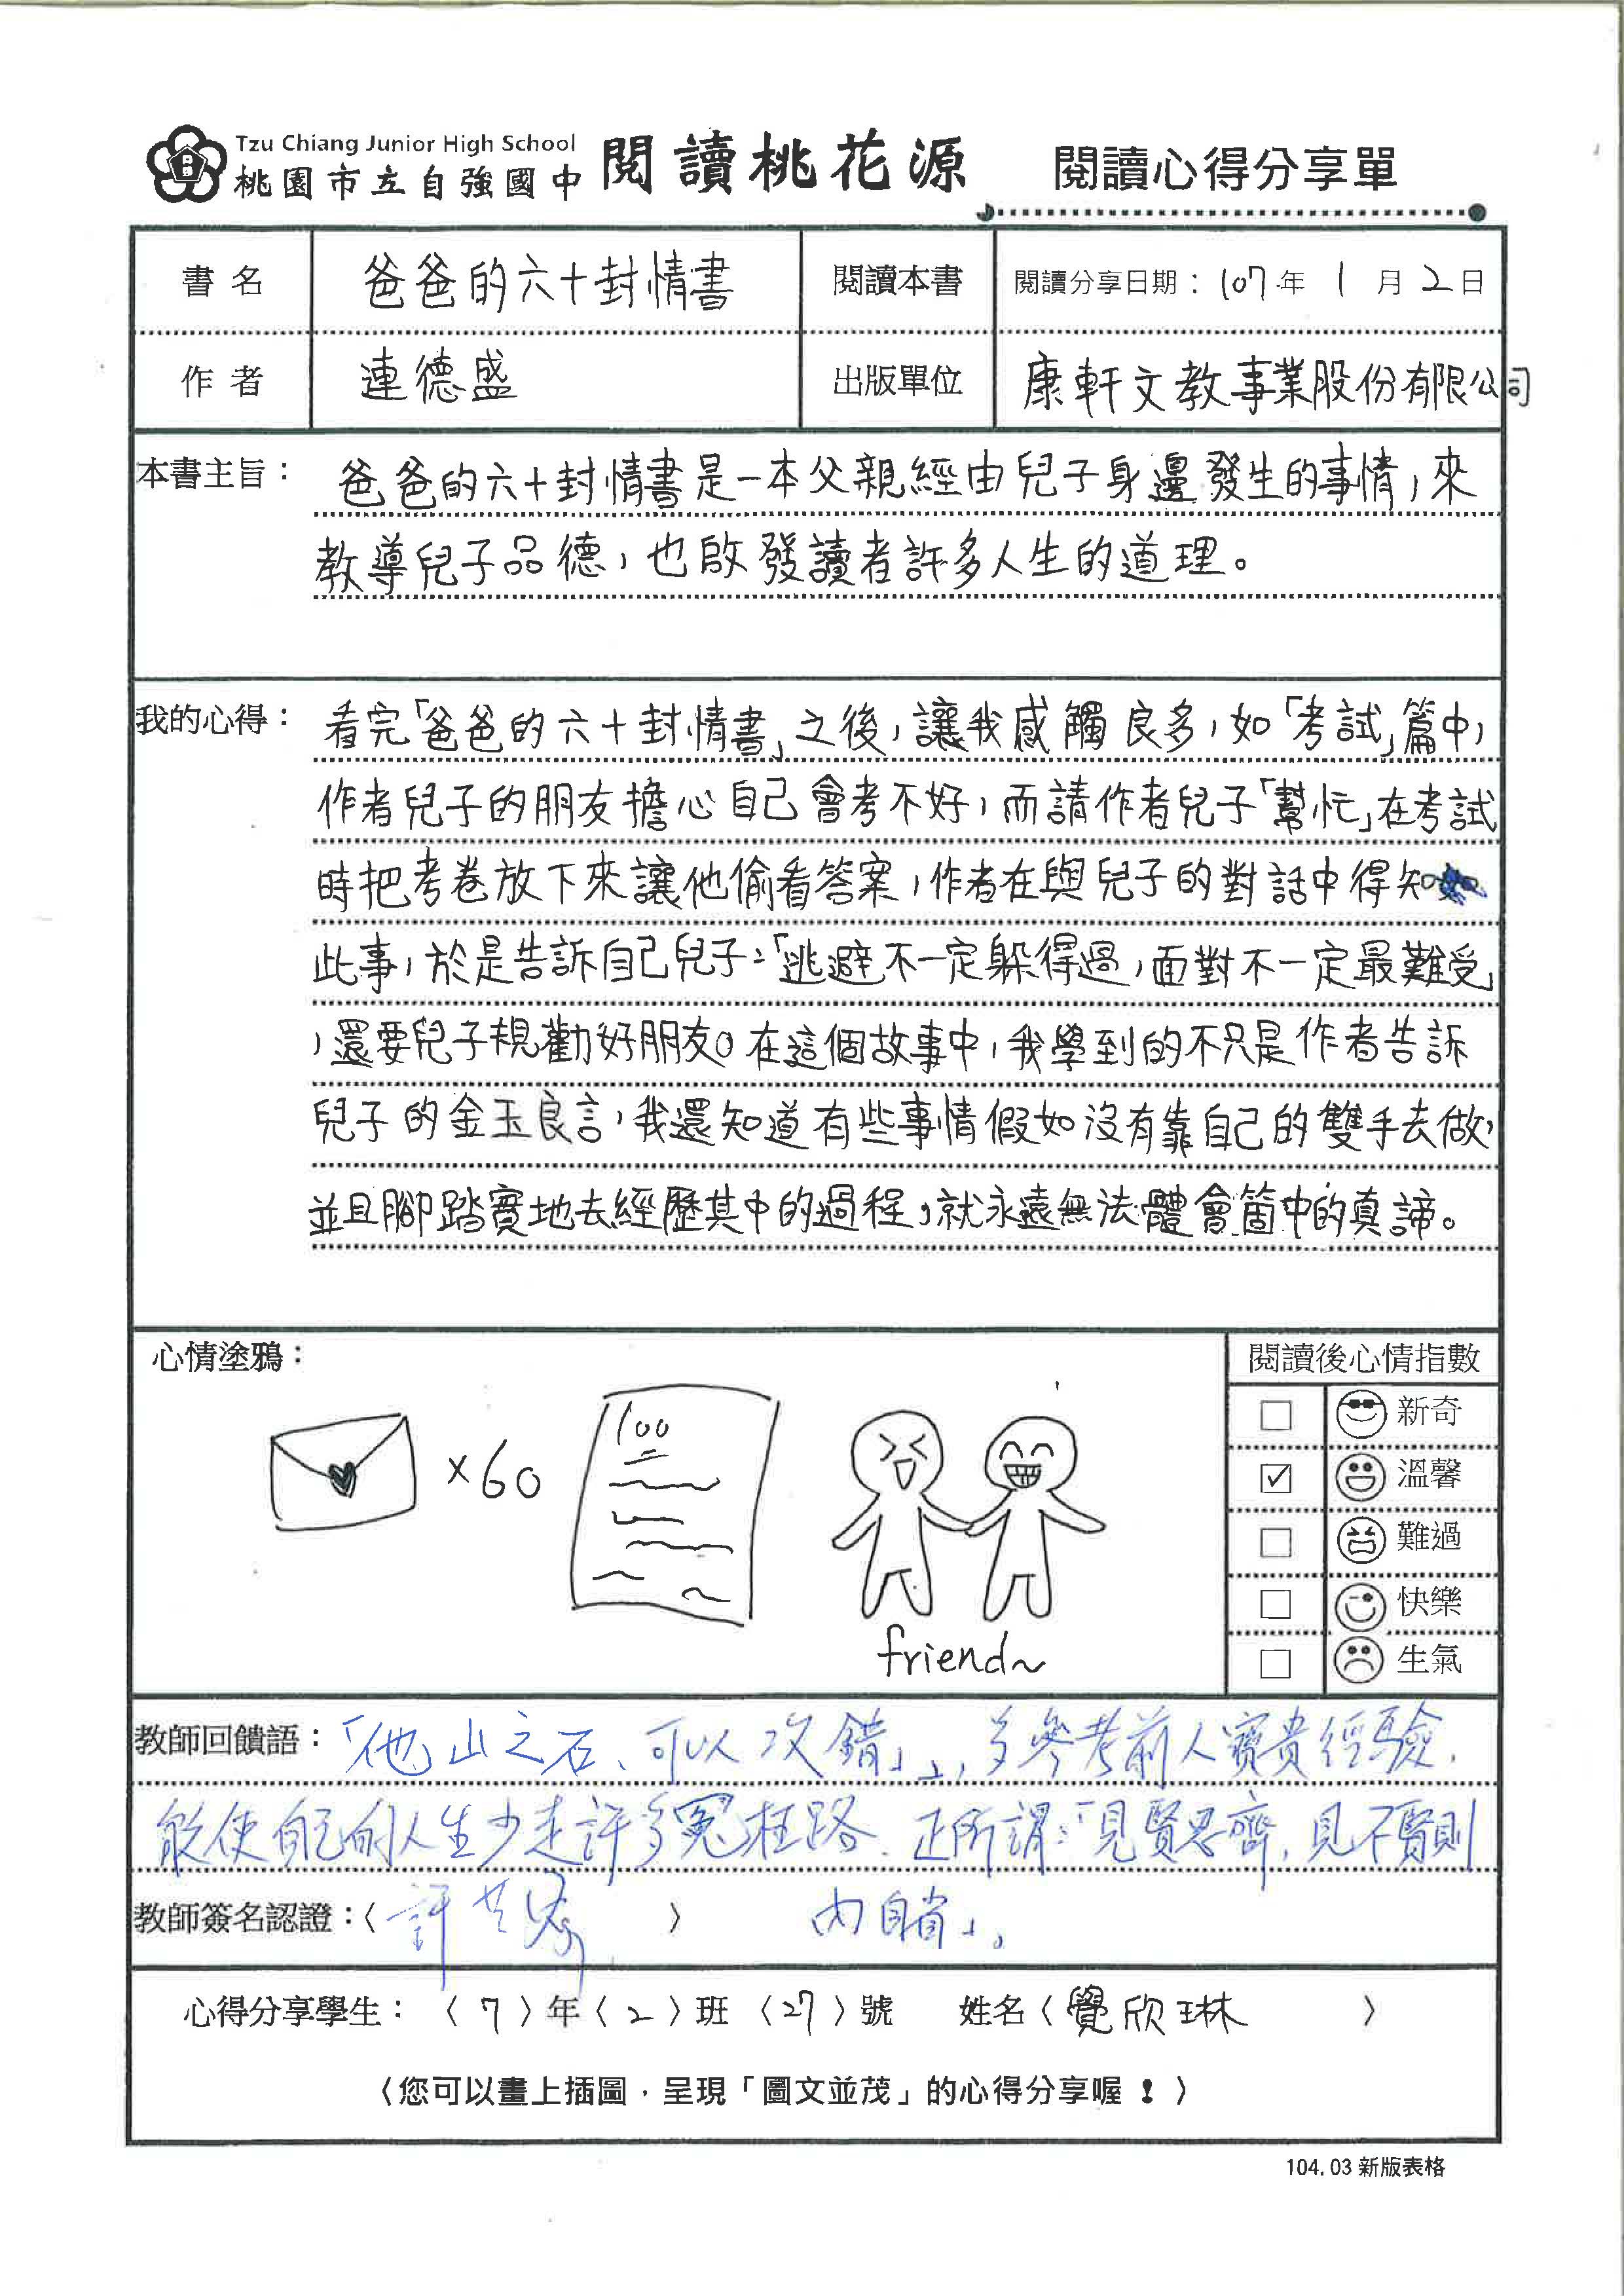 Tzu Chiang Junior High School
桃園市立自強國中 閱讀桃花源 閱讀心得分享單
書名 爸爸的六十封情書 閱讀本書 閱讀分享日期：107年1月2日
作者 連德盛 出版單位 康軒文教事業股份有限公司
本書主旨：爸爸的六十封情書是一本父親經由兒子身邊發生的事情，來
教導兒子品德，也啟發讀者許多人生的道理。
我的心得：看完「爸爸的六十封情書」之後，讓我感觸良多，如「考試」篇中，
作者兒子的朋友擔心自己會考不好，而請作者兒子「幫忙」在考試
時把考卷放下來讓他偷看答案，作者在與兒子的對話中得知
此事，於是告訴自己兒子：「逃避不一定躲得過，面對不一定最難受」
，還要兒子規勸好朋友。在這個故事中，我學到的不只是作者告訴
兒子的金玉良言，我還知道有些事情假如沒有靠自己的雙手去做，
並且腳踏實地去經歷其中的過程，就永遠無法體會箇中的真諦。
心情塗鴉：
×60
100
friend~
閱讀後心情指數
☐ 新奇
☑ 溫馨
☐ 難過
☐ 快樂
☐ 生氣
教師回饋語：「他山之石、可以攻錯」，多參考前人寶貴經驗，
能使自己的人生少走許多冤枉路。正所謂：「見賢思齊，見不賢則
教師簽名認證：〈許 〉 內自省」。
心得分享學生：〈7〉年〈2〉班〈27〉號 姓名〈覺欣琳〉
〈您可以畫上插圖，呈現「圖文並茂」的心得分享喔！〉
104.03新版表格